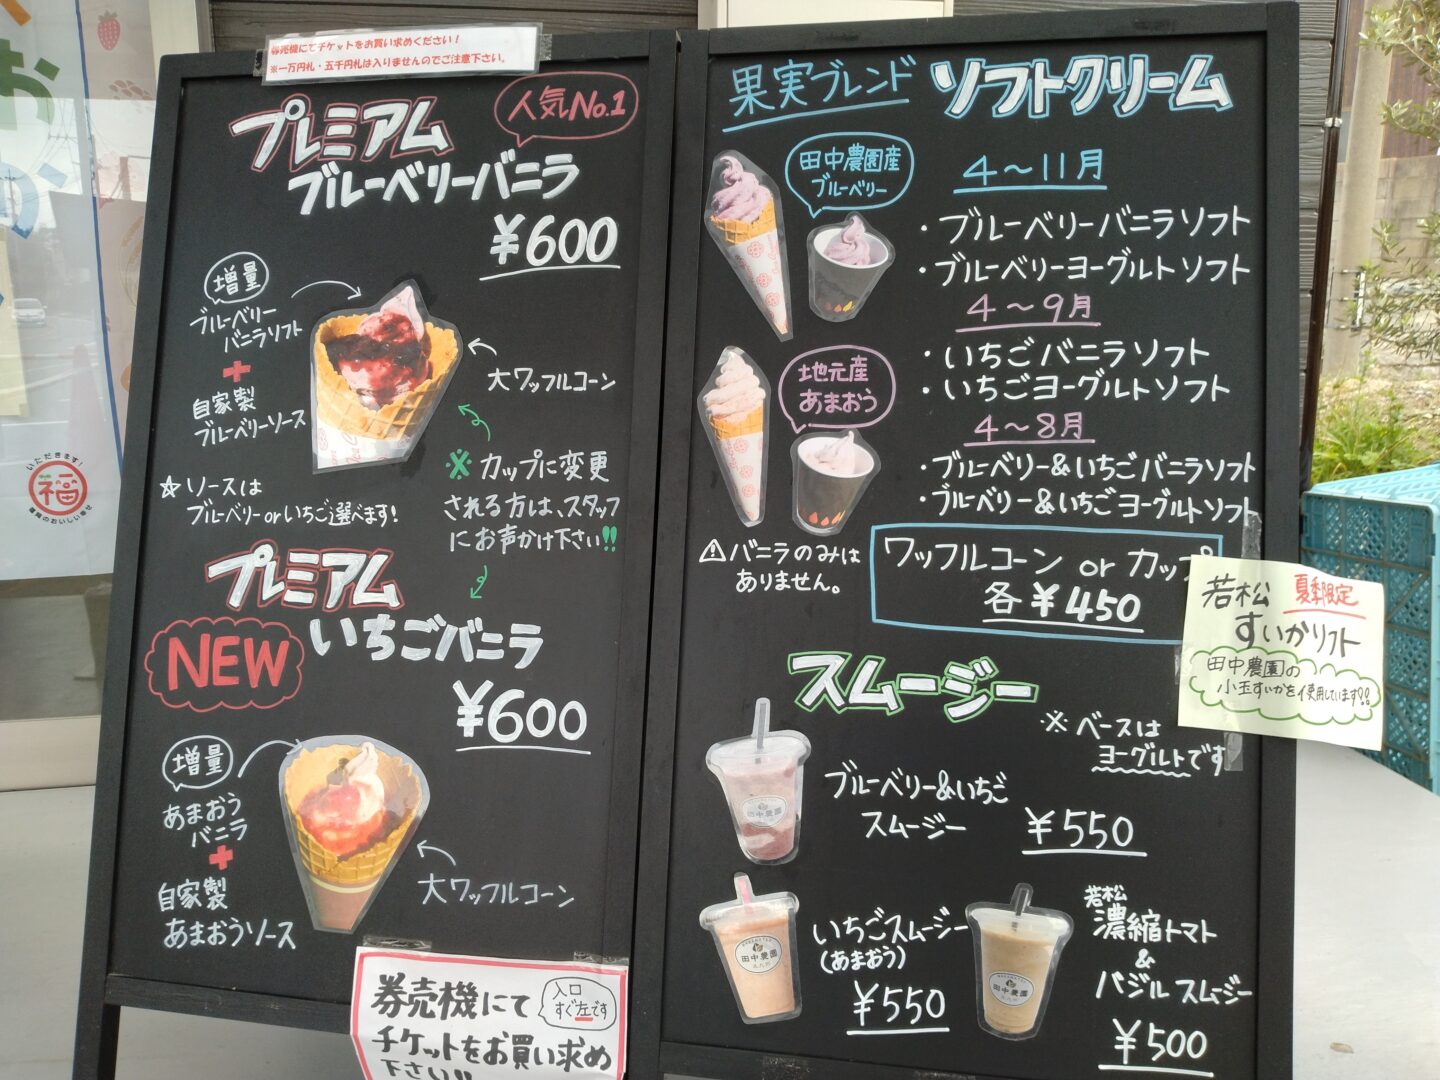 券売機にてチケットをお買い求めください!
※一万円札・五千円札は入りませんのでご注意下さい。
人気No.1
プレミアム
ブルーベリーバニラ
¥600
増量
ブルーベリー
バニラソフト
+
自家製
ブルーベリーソース
大ワッフルコーン
☆ソースは
ブルーベリーorいちご選べます!
※カップに変更
される方は、スタッフ
にお声かけ下さい!!
プレミアム
いちごバニラ
NEW
¥600
増量
あまおう
バニラ
+
自家製
あまおうソース
大ワッフルコーン
券売機にて
チケットをお買い求め
下さい!!
入口
すぐ左です
いただきます!
福
果実ブレンド ソフトクリーム
田中農園産
ブルーベリー
4〜11月
・ブルーベリーバニラソフト
・ブルーベリーヨーグルトソフト
4〜9月
・いちごバニラソフト
・いちごヨーグルトソフト
地元産
あまおう
4〜8月
・ブルーベリー&いちごバニラソフト
・ブルーベリー&いちごヨーグルトソフト
⚠バニラのみは
ありません。
ワッフルコーン or カップ
各¥450
若松 夏季限定
すいかソフト
田中農園の
小玉すいかを使用しています!!
スムージー
※ベースは
ヨーグルトです
ブルーベリー&いちご
スムージー
¥550
田中農園
いちごスムージー
(あまおう)
¥550
田中農園
若松
濃縮トマト
&
バジルスムージー
¥500
田中農園